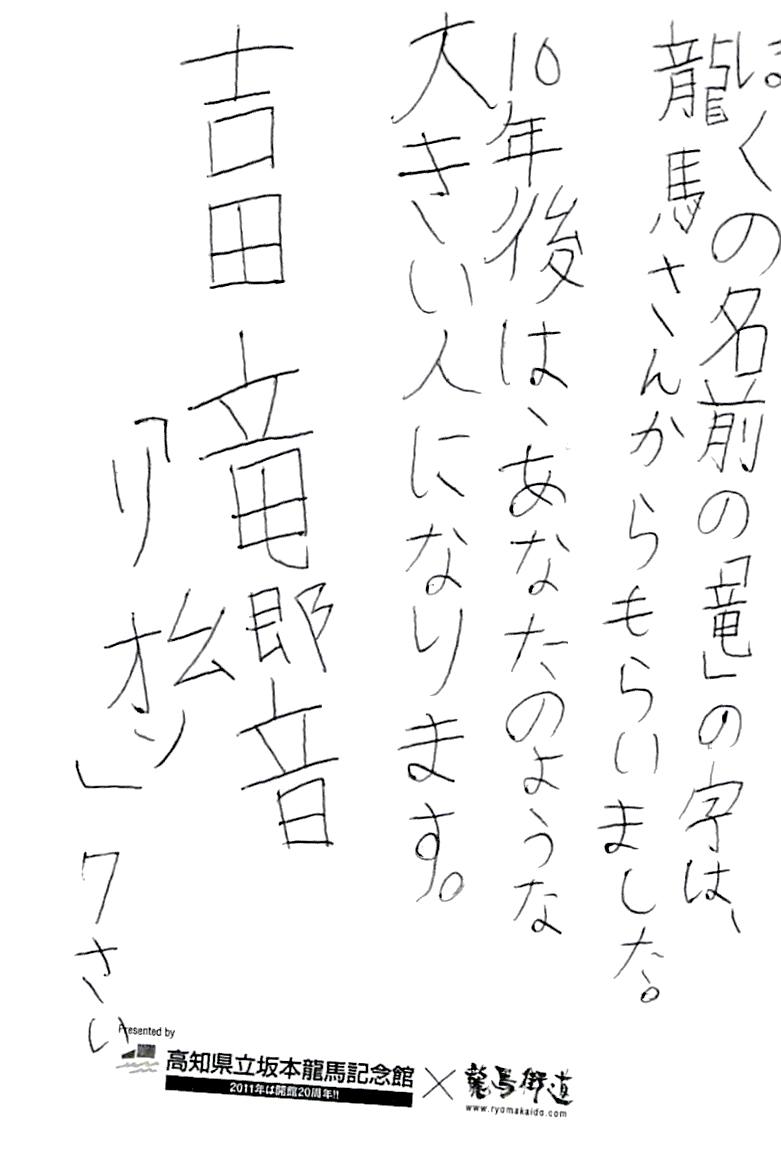 ぼくの名前の「竜」の字は、
龍馬さんからもらいました。
10年後は、あなたのような
大きい人になります。
吉田 竜郎音
「リオン」 7さい
Presented by
高知県立坂本龍馬記念館×龍馬街道
2011年は開館20周年!!
www.ryomakaido.com